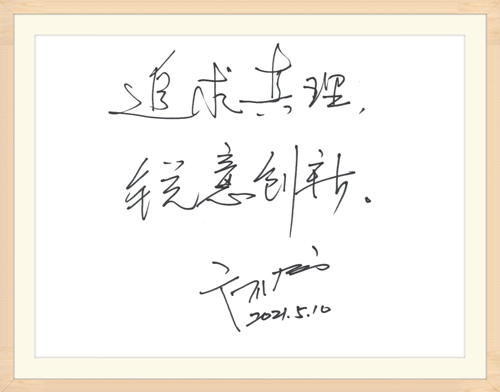 追求真理，
锐意创新。
2021.5.10